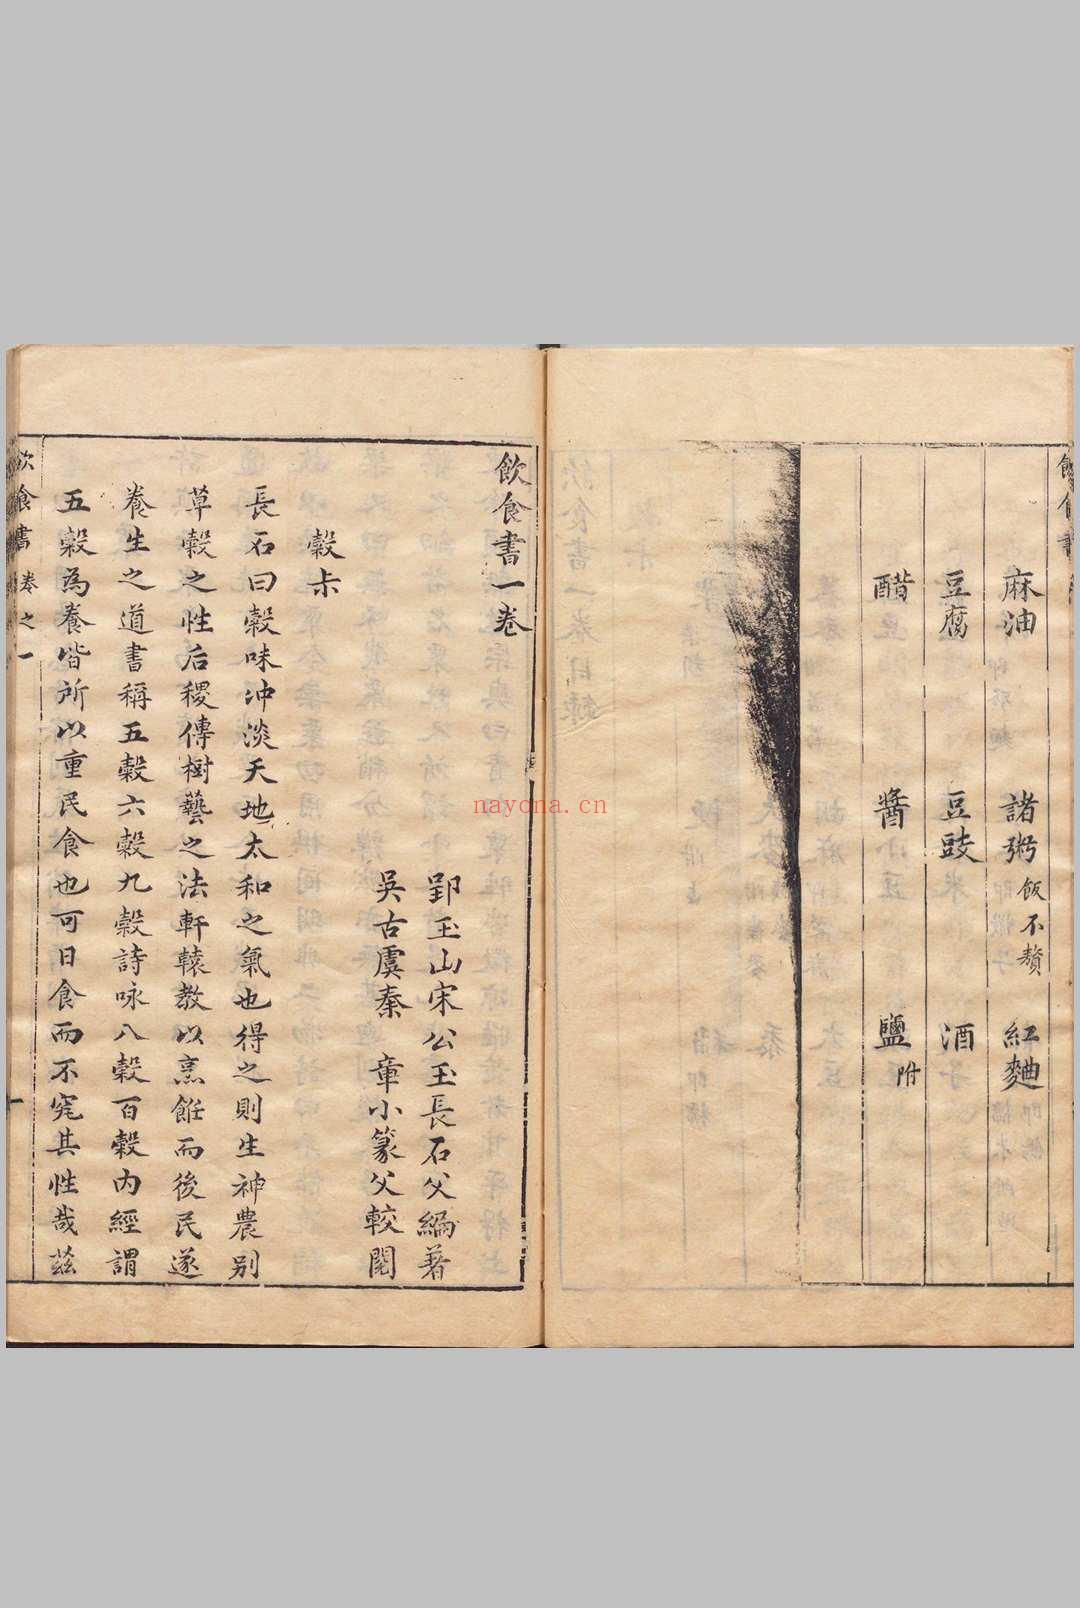 飲食書
麻油　諸粥 飯不贅　紅麯
豆腐　豆豉　酒
醋　醬　鹽 附
飲食書一卷
郢玉山宋公玉長石父編著
吳古虞秦　章小篆父較閱
穀尗
長石曰穀味冲淡天地太和之氣也得之則生神農别
草穀之性后稷傳樹藝之法軒轅教以烹飪而後民遂
養生之道書稱五穀六穀九穀詩咏八穀百穀内經謂
五穀為養皆所以重民食也可日食而不究其性哉茲
飲食書　卷之一　一
nayona.cn